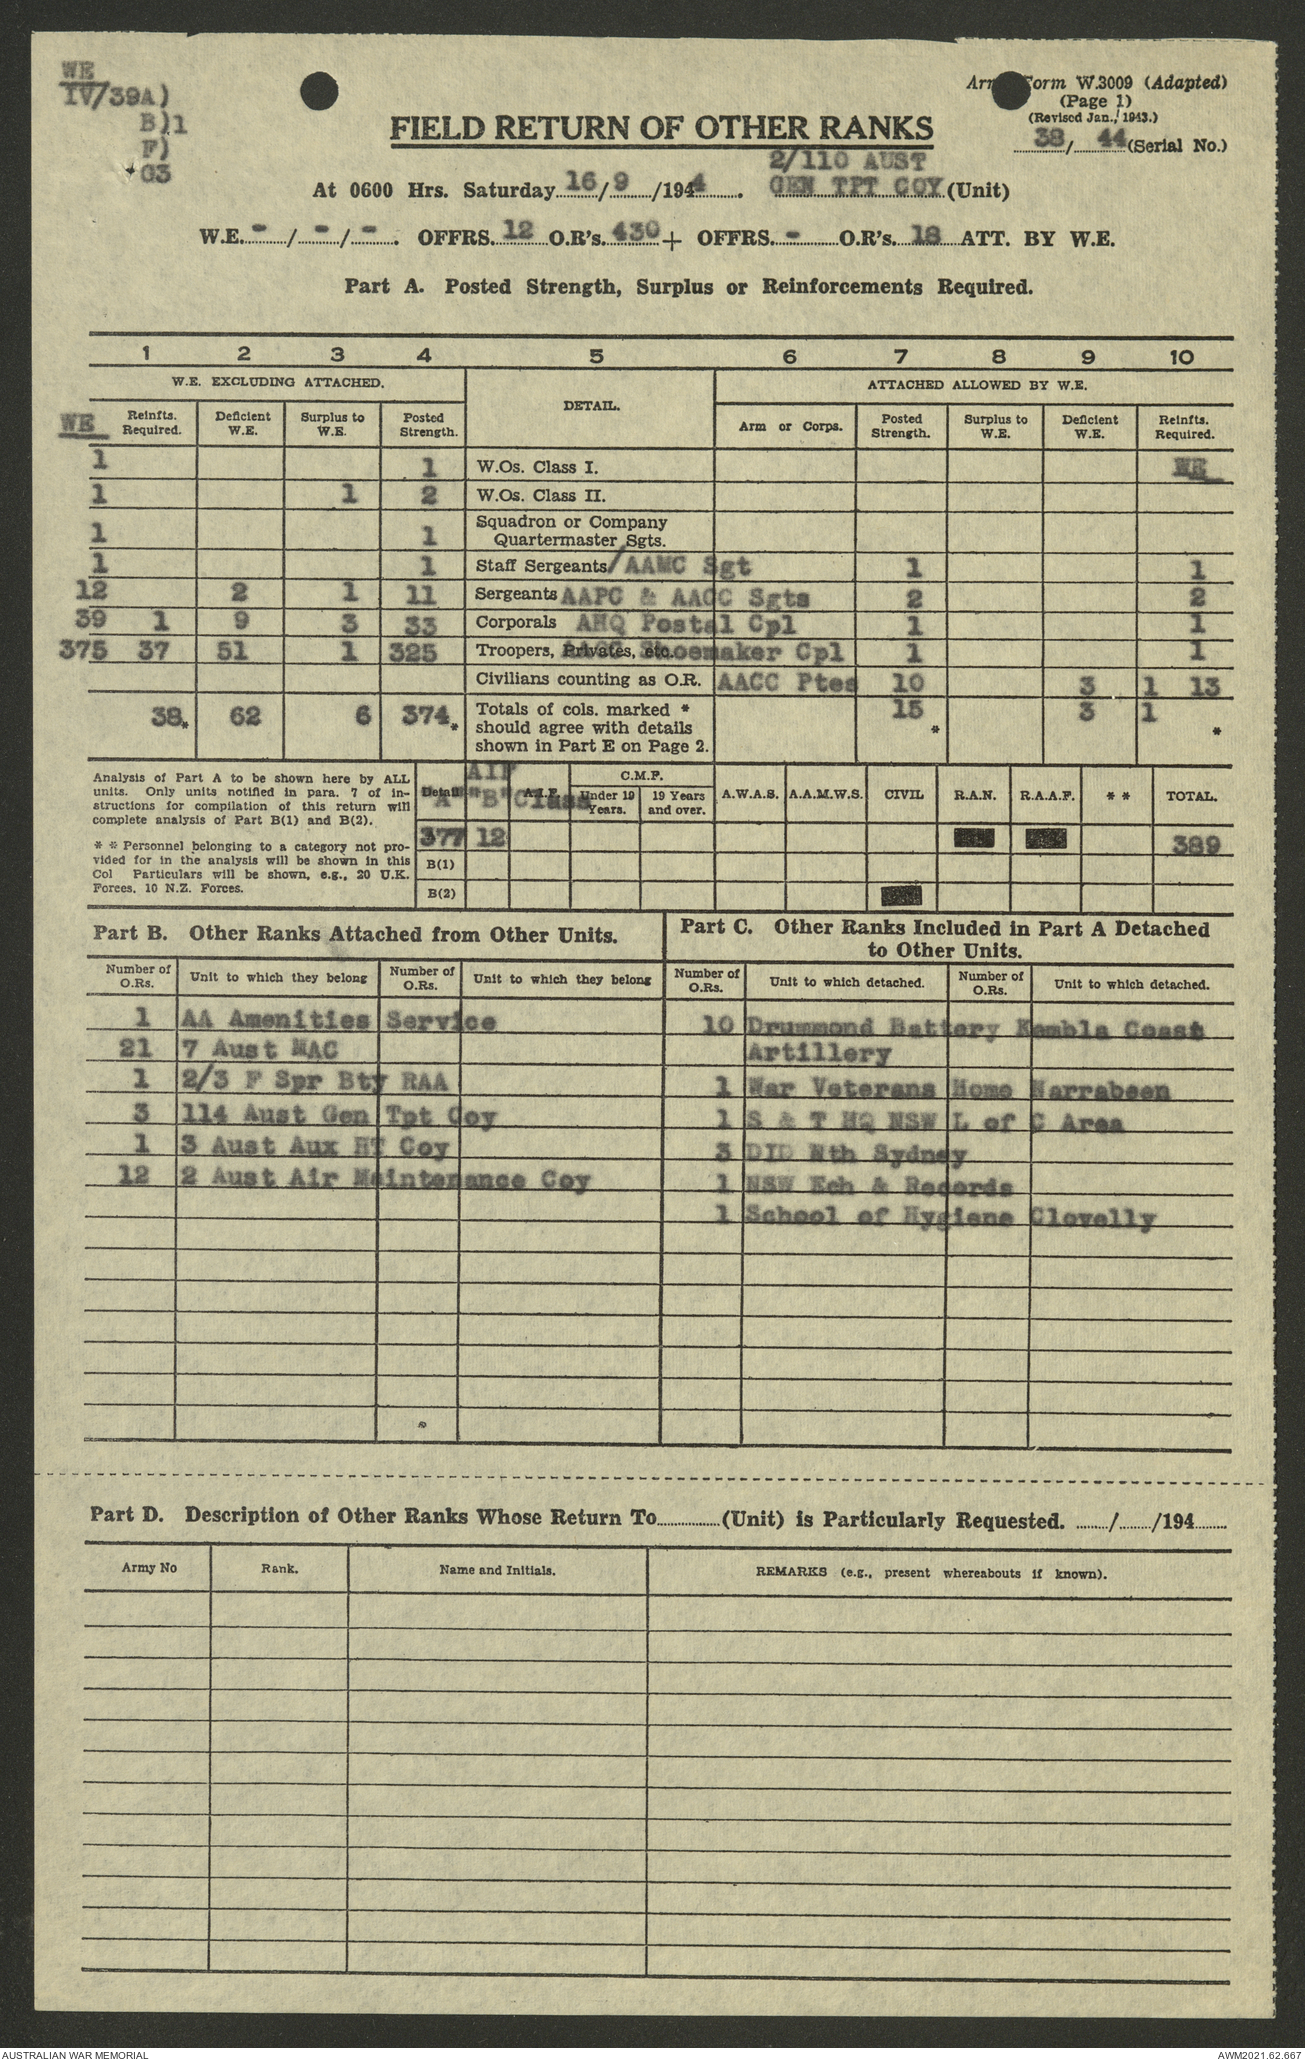 WE
IV/39A)
B)1
F)
G3
Form W.3009 (Adapted)
(Page 1)
(Revised Jan., 1943.)
38/ 44 (Serial No.)
FIELD RETURN OF OTHER RANKS
2/110 AUST
At 0600 Hrs. Saturday 16/9/1944. GEN TPT COY (Unit)
W.E. - / - / - . OFFRS. 12 O.R's. 430 + OFFRS. - O.R's. 18 ATT. BY W.E.
Part A. Posted Strength, Surplus or Reinforcements Required.
1 2 3 4 5 6 7 8 9 10
W.E. EXCLUDING ATTACHED. DETAIL. ATTACHED ALLOWED BY W.E.
WE Reinfts. Required. Deficient W.E. Surplus to W.E. Posted Strength. Arm or Corps. Posted Strength. Surplus to W.E. Deficient W.E. Reinfts. Required.
1 1 W.Os. Class I. WE
1 1 2 W.Os. Class II.
1 1 Squadron or Company Quartermaster Sgts.
1 1 Staff Sergeants/AAMC Sgt 1 1
12 2 1 11 Sergeants AAPC & AACC Sgts 2 2
39 1 9 3 33 Corporals AHQ Postal Cpl 1 1
375 37 51 1 325 Troopers, Privates, etc. AACC Shoemaker Cpl 1 1
Civilians counting as O.R. AACC Ptes 10 3 1 13
38* 62 6 374* Totals of cols. marked * 15 3 1
should agree with details * *
shown in Part E on Page 2.
Analysis of Part A to be shown here by ALL
units. Only units notified in para. 7 of in-
structions for compilation of this return will
complete analysis of Part B(1) and B(2).
* * Personnel belonging to a category not pro-
vided for in the analysis will be shown in this
Col Particulars will be shown, e.g., 20 U.K.
Forces, 10 N.Z. Forces.
AIF C.M.F.
Detail "A" "B" Class A.I.F. Under 19 Years. 19 Years and over. A.W.A.S. A.A.M.W.S. CIVIL R.A.N. R.A.A.F. * * TOTAL.
377 12 389
B(1)
B(2)
Part B. Other Ranks Attached from Other Units.
Number of O.Rs. Unit to which they belong Number of O.Rs. Unit to which they belong
1 AA Amenities Service
21 7 Aust MAC
1 2/3 F Spr Bty RAA
3 114 Aust Gen Tpt Coy
1 3 Aust Aux HT Coy
12 2 Aust Air Maintenance Coy
Part C. Other Ranks Included in Part A Detached
to Other Units.
Number of O.Rs. Unit to which detached. Number of O.Rs. Unit to which detached.
10 Drummond Battery Kembla Coast
Artillery
1 War Veterans Home Narrabeen
1 S & T HQ NSW L of C Area
3 DID Nth Sydney
1 NSW Ech & Records
1 School of Hygiene Clovelly
Part D. Description of Other Ranks Whose Return To (Unit) is Particularly Requested. / /194
Army No Rank. Name and Initials. REMARKS (e.g., present whereabouts if known).
AUSTRALIAN WAR MEMORIAL AWM2021.62.667